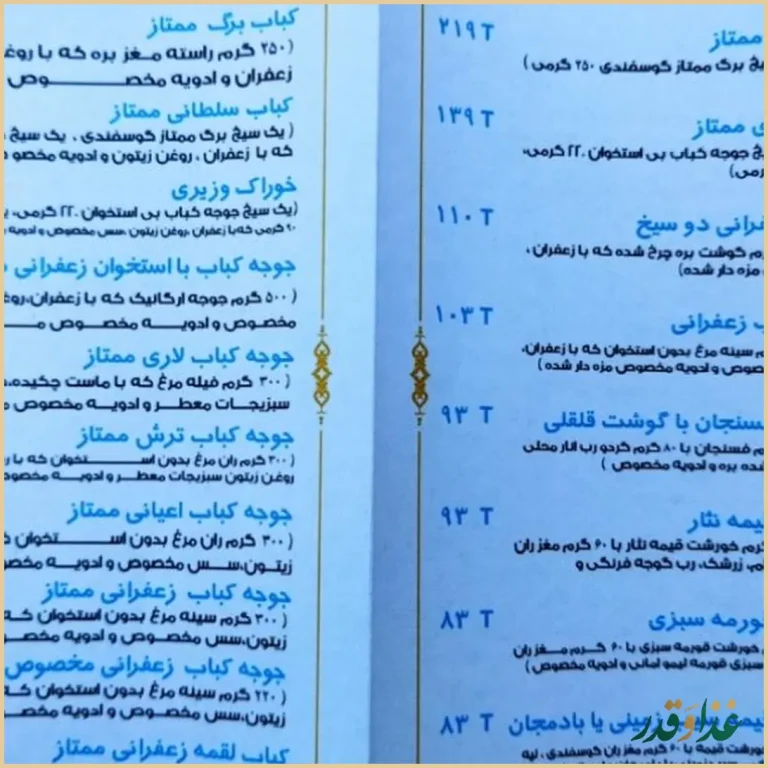 ممتاز
۲۱۹ T
سیخ برگ ممتاز گوسفندی ۲۵۰ گرمی )
ممتاز
۱۳۹ T
جوجه کباب بی استخوان ۲۲۰ گرمی،
دو سیخ
۱۱۰ T
گوشت بره چرخ شده که با زعفران ،
مزه دار شده)
زعفرانی
۱۰۳ T
سینه مرغ بدون استخوان که با زعفران،
مخصوص و ادویه مخصوص مزه دار شده )
فسنجان با گوشت قلقلی
۹۳ T
فسنجان با ۸۰ گرم گردو رب انار محلی
بره و ادویه مخصوص )
قیمه نثار
۹۳ T
خورشت قیمه نثار با ۶۰ گرم مغز ران
زرشک، رب گوجه فرنگی و
قورمه سبزی
۸۳ T
خورشت قورمه سبزی با ۶۰ گرم مغز ران
سبزی قورمه لیمو امانی و ادویه مخصوص )
یا بادمجان
۸۳ T
خورشت قیمه با ۶۰ گرم مغز ران گوسفندی ، لپه
کباب برگ ممتاز
( ۲۵۰ گرم راسته مغز بره که با روغن
زعفران و ادویه مخصوص
کباب سلطانی ممتاز
( یک سیخ برگ ممتاز گوسفندی ، یک سیخ
که با زعفران ، روغن زیتون و ادویه مخصوص
خوراک وزیری
(یک سیخ جوجه کباب بی استخوان ۲۲۰ گرمی،
۹۰ گرمی که با زعفران ،روغن زیتون ،سس مخصوص و ادویه
جوجه کباب با استخوان زعفرانی
( ۵۰۰ گرم جوجه ارگانیک که با زعفران،روغن
مخصوص و ادویه مخصوص
جوجه کباب لاری ممتاز
( ۳۰۰ گرم فیله مرغ که با ماست چکیده،
سبزیجات معطر و ادویه مخصوص
جوجه کباب ترش ممتاز
( ۳۰۰ گرم ران مرغ بدون استخوان که با
روغن زیتون سبزیجات معطر و ادویه مخصوص
جوجه کباب اعیانی ممتاز
( ۳۰۰ گرم ران مرغ بدون استخوان
زیتون،سس مخصوص و ادویه مخصوص
جوجه کباب زعفرانی ممتاز
( ۳۰۰ گرم سینه مرغ بدون استخوان که
زیتون،سس مخصوص و ادویه مخصوص
جوجه کباب زعفرانی مخصوص
( ۲۲۰ گرم سینه مرغ بدون استخوان که
زیتون،سس مخصوص و ادویه مخصوص
کباب لقمه زعفرانی ممتاز
غذا و قدر